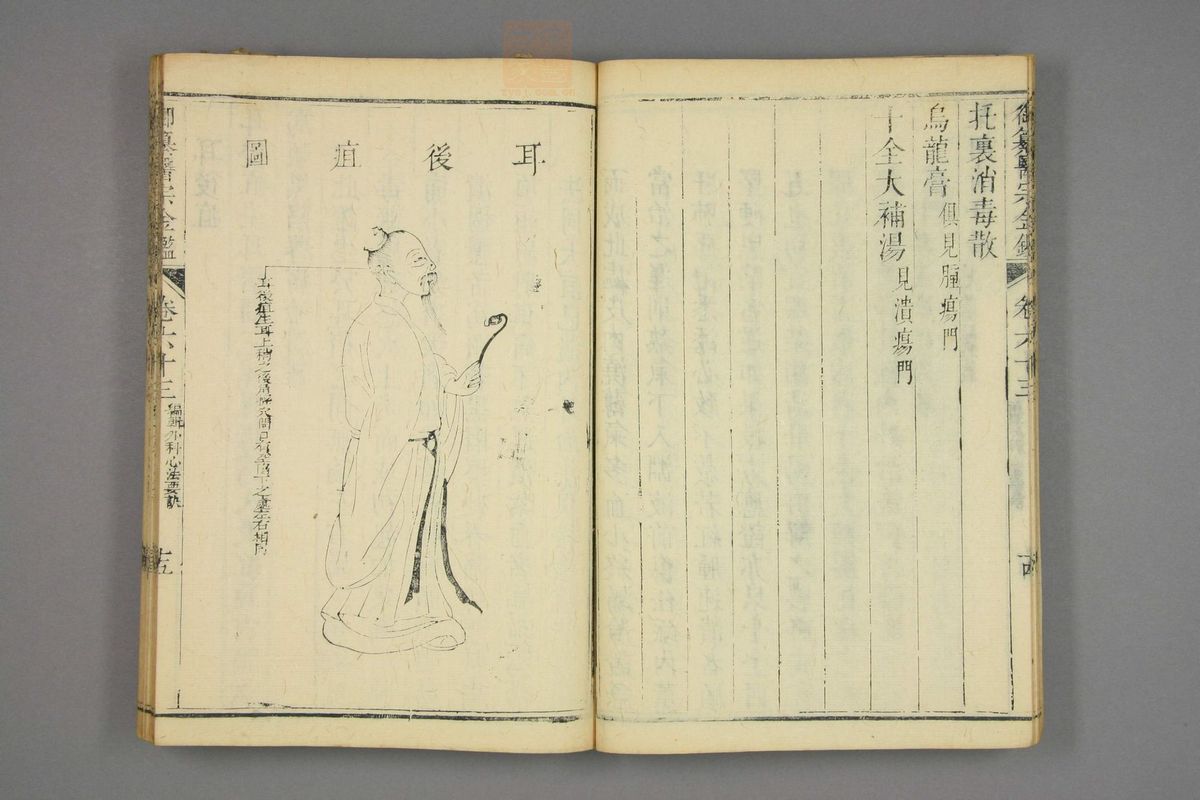 托裏消毒散
烏龍膏 俱見腫瘍門
十全大補湯 見潰瘍門
御纂醫宗金鑑
卷六十三
耳後疽圖
耳後疽生耳上稍之後
左右相同
御纂醫宗金鑑
卷六十三
編輯外科心法要訣
十五